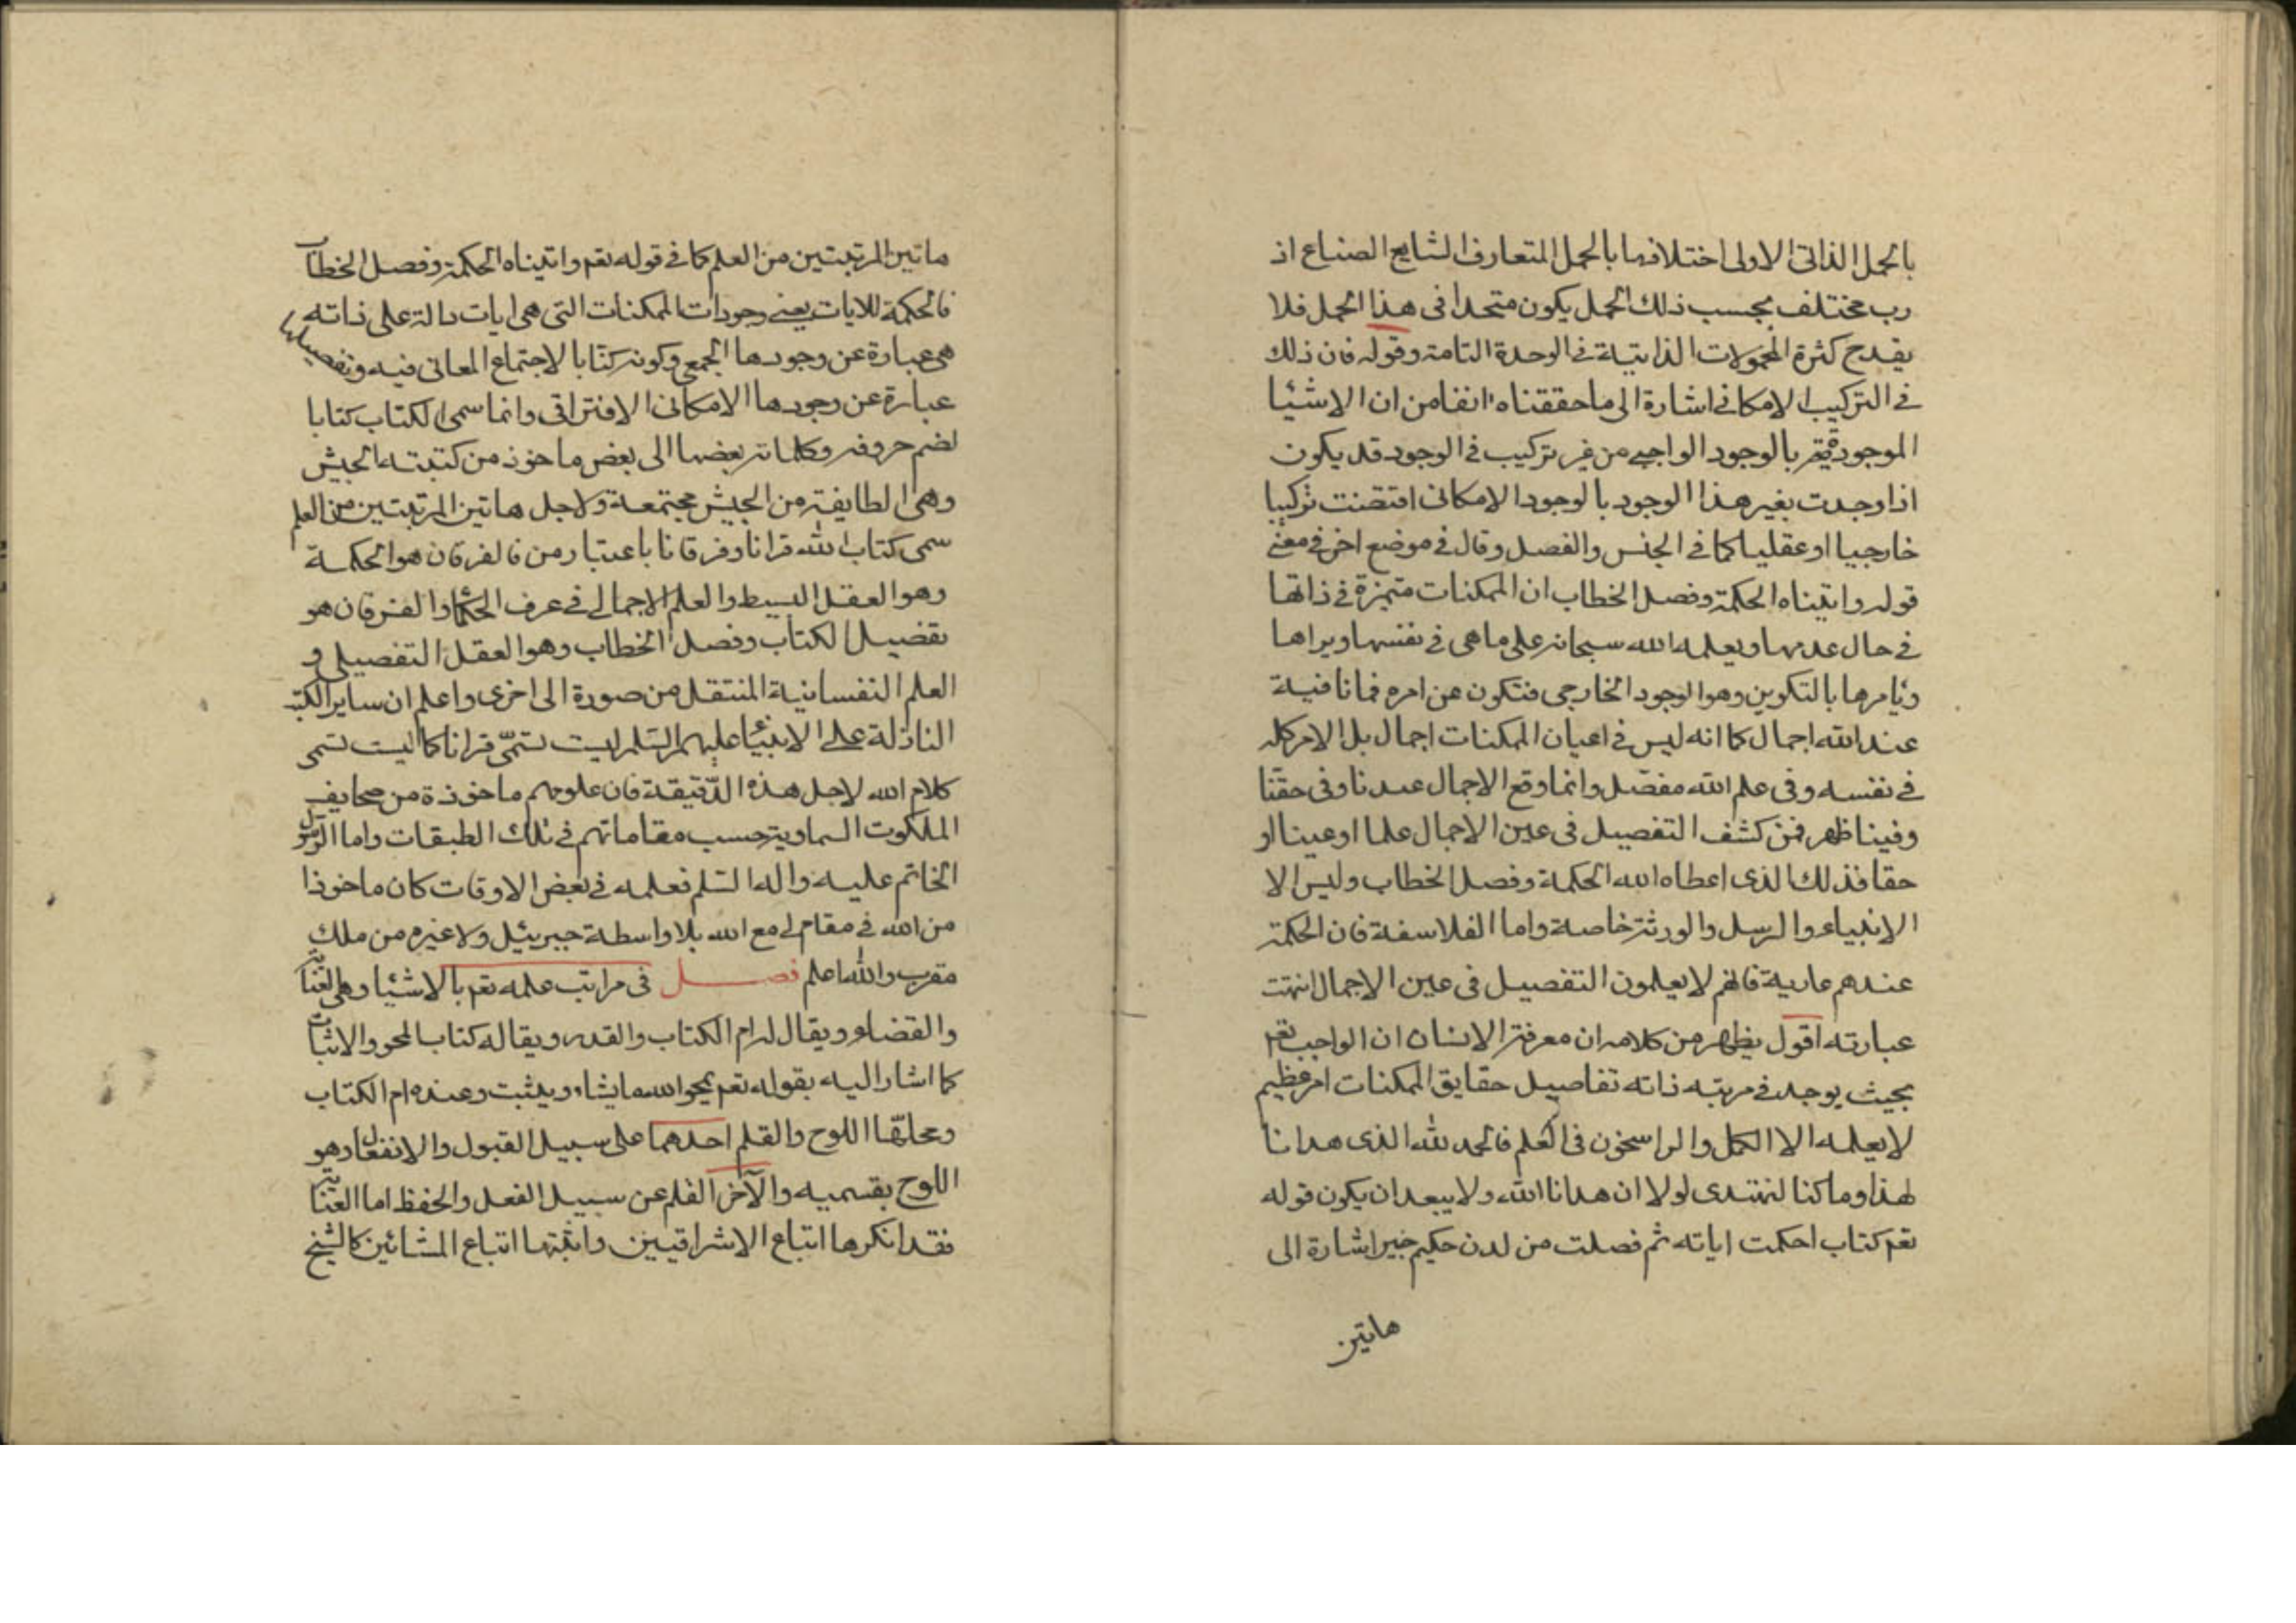 بالحمل الذاتى الاولى اختلافها بالحمل المتعارف الشايع الصناع اذ
رب مختلف بحسب ذلك الحمل يكون متحدا فى هذا الحمل فلا
يقدح كثرة المحمولات الذاتية فى الوحدة التامة وقوله فان ذلك
فى التركيب الامكانى اشارة الى ما حققناه انفا من ان الاشيا
الموجودة بالوجود الواجبى من غير تركيب فى الوجود قد يكون
اذا وجدت بغير هذا الوجود بالوجود الامكانى اقتضت تركيبا
خارجيا او عقليا كما فى الجنس والفصل وقال فى موضع اخر فى معنى
قوله واتيناه الحكمة وفصل الخطاب ان الممكنات متميزة فى ذاتها
فى حال عدمها ويعلمه الله سبحانه على ماهى فى نفسها ويراها
ويأمرها بالتكوين وهو الوجود الخارجى فتكون عن امره فما نافية
عند الله اجمال كما انه ليس فى اعيان الممكنات اجمال بل الامر كله
فى نفسه وفى علم الله مفصل وانما وقع الاجمال عندنا وفى حقنا
وفينا ظهر فمن كشف التفصيل فى عين الاجمال علما او عينا او
حقا فذلك الذى اعطاه الله الحكمة وفصل الخطاب وليس الا
الانبياء والرسل والورثة خاصة واما الفلاسفة فان الحكمة
عندهم عارية فانهم لا يعلمون التفصيل فى عين الاجمال انتهت
عبارته اقول يظهر من كلامه ان معرفة الانسان ان الواجب تعم
بحيث يوجد فى مرتبه ذاته تفاصيل حقايق الممكنات امر عظيم
لا يعلمه الا الكمل والراسخون فى العلم فالحمد لله الذى هدانا
لهذا وما كنا لنهتدى لولا ان هدانا الله ولا يبعد ان يكون قوله
تعم كتاب احكمت اياته ثم فصلت من لدن حكيم خبير اشارة الى
هاتين
هاتين المرتبتين من العلم كما فى قوله تعم واتيناه الحكمة وفصل الخطاب
فالحكمة للايات يعنى وجودات الممكنات التى هى ايات دالة على ذاته
هى عبارة عن وجودها الجمعى وكونه كتابا لاجتماع المعانى فيه وتفصيلها
عبارة عن وجودها الامكانى الافتراقى وانما سمى الكتاب كتابا
لضم حروفه وكلماته بعضها الى بعض ماخوذ من كتبته الجيش
وهى الطايفة من الجيش مجتمعة ولاجل هاتين المرتبتين من العلم
سمى كتاب الله قرانا وفرقانا باعتبار من فالفرقان هو الحكمة
وهو العقل البسيط والعلم الاجمالى فى عرف الحكما والفرقان هو
تفضيل الكتاب وفصل الخطاب وهو العقل التفصيلى و
العلم النفسانية المنتقل من صورة الى اخرى واعلم ان ساير الكتب
النازلة على الانبيا عليهم السلم ليست تسمّى قرانا كما ليست تسمى
كلام الله لاجل هذه الدّقيقة فان علومهم ماخوذة من صحايف
الملكوت السماوية حسب مقاماتهم فى تلك الطبقات واما الرسول
الخاتم عليه واله السلم فعلمه فى بعض الاوقات كان ماخوذا
من الله فى مقام لى مع الله بلا واسطة جبرئيل ولا غيره من ملك
مقرب والله اعلم فصل فى مراتب علمه تعم بالاشيا وهى العناية
والقضاء ويقال له ام الكتاب والقدر ويقال له كتاب المحو والاثبات
كما اشار اليه بقوله تعم يمحو الله ما يشاء ويثبت وعنده ام الكتاب
ومحلهّا اللوح والقلم احدهما على سبيل القبول والانفعال وهو
اللوح بقسميه والآخر القلم عن سبيل الفعل والحفظ اما العناية
فقد انكرها اتباع الاشراقيين واثبتها اتباع المشائين كالشيخ